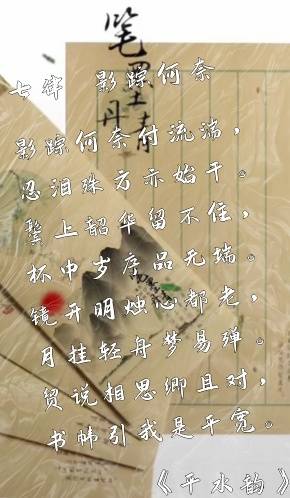 笔墨丹青
七律 影踪何奈
影踪何奈付流湍，
忍泪殊方亦始干。
鬓上韶华留不住，
杯中岁序品无端。
镜开明烛心都老，
月挂轻舟梦易弹。
贸说相思卿且对，
书帏引我是平宽。
《平水韵》